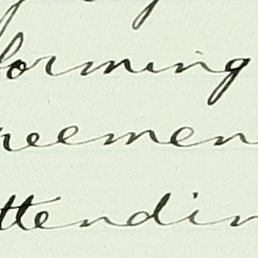 forming
reemen
ttendin